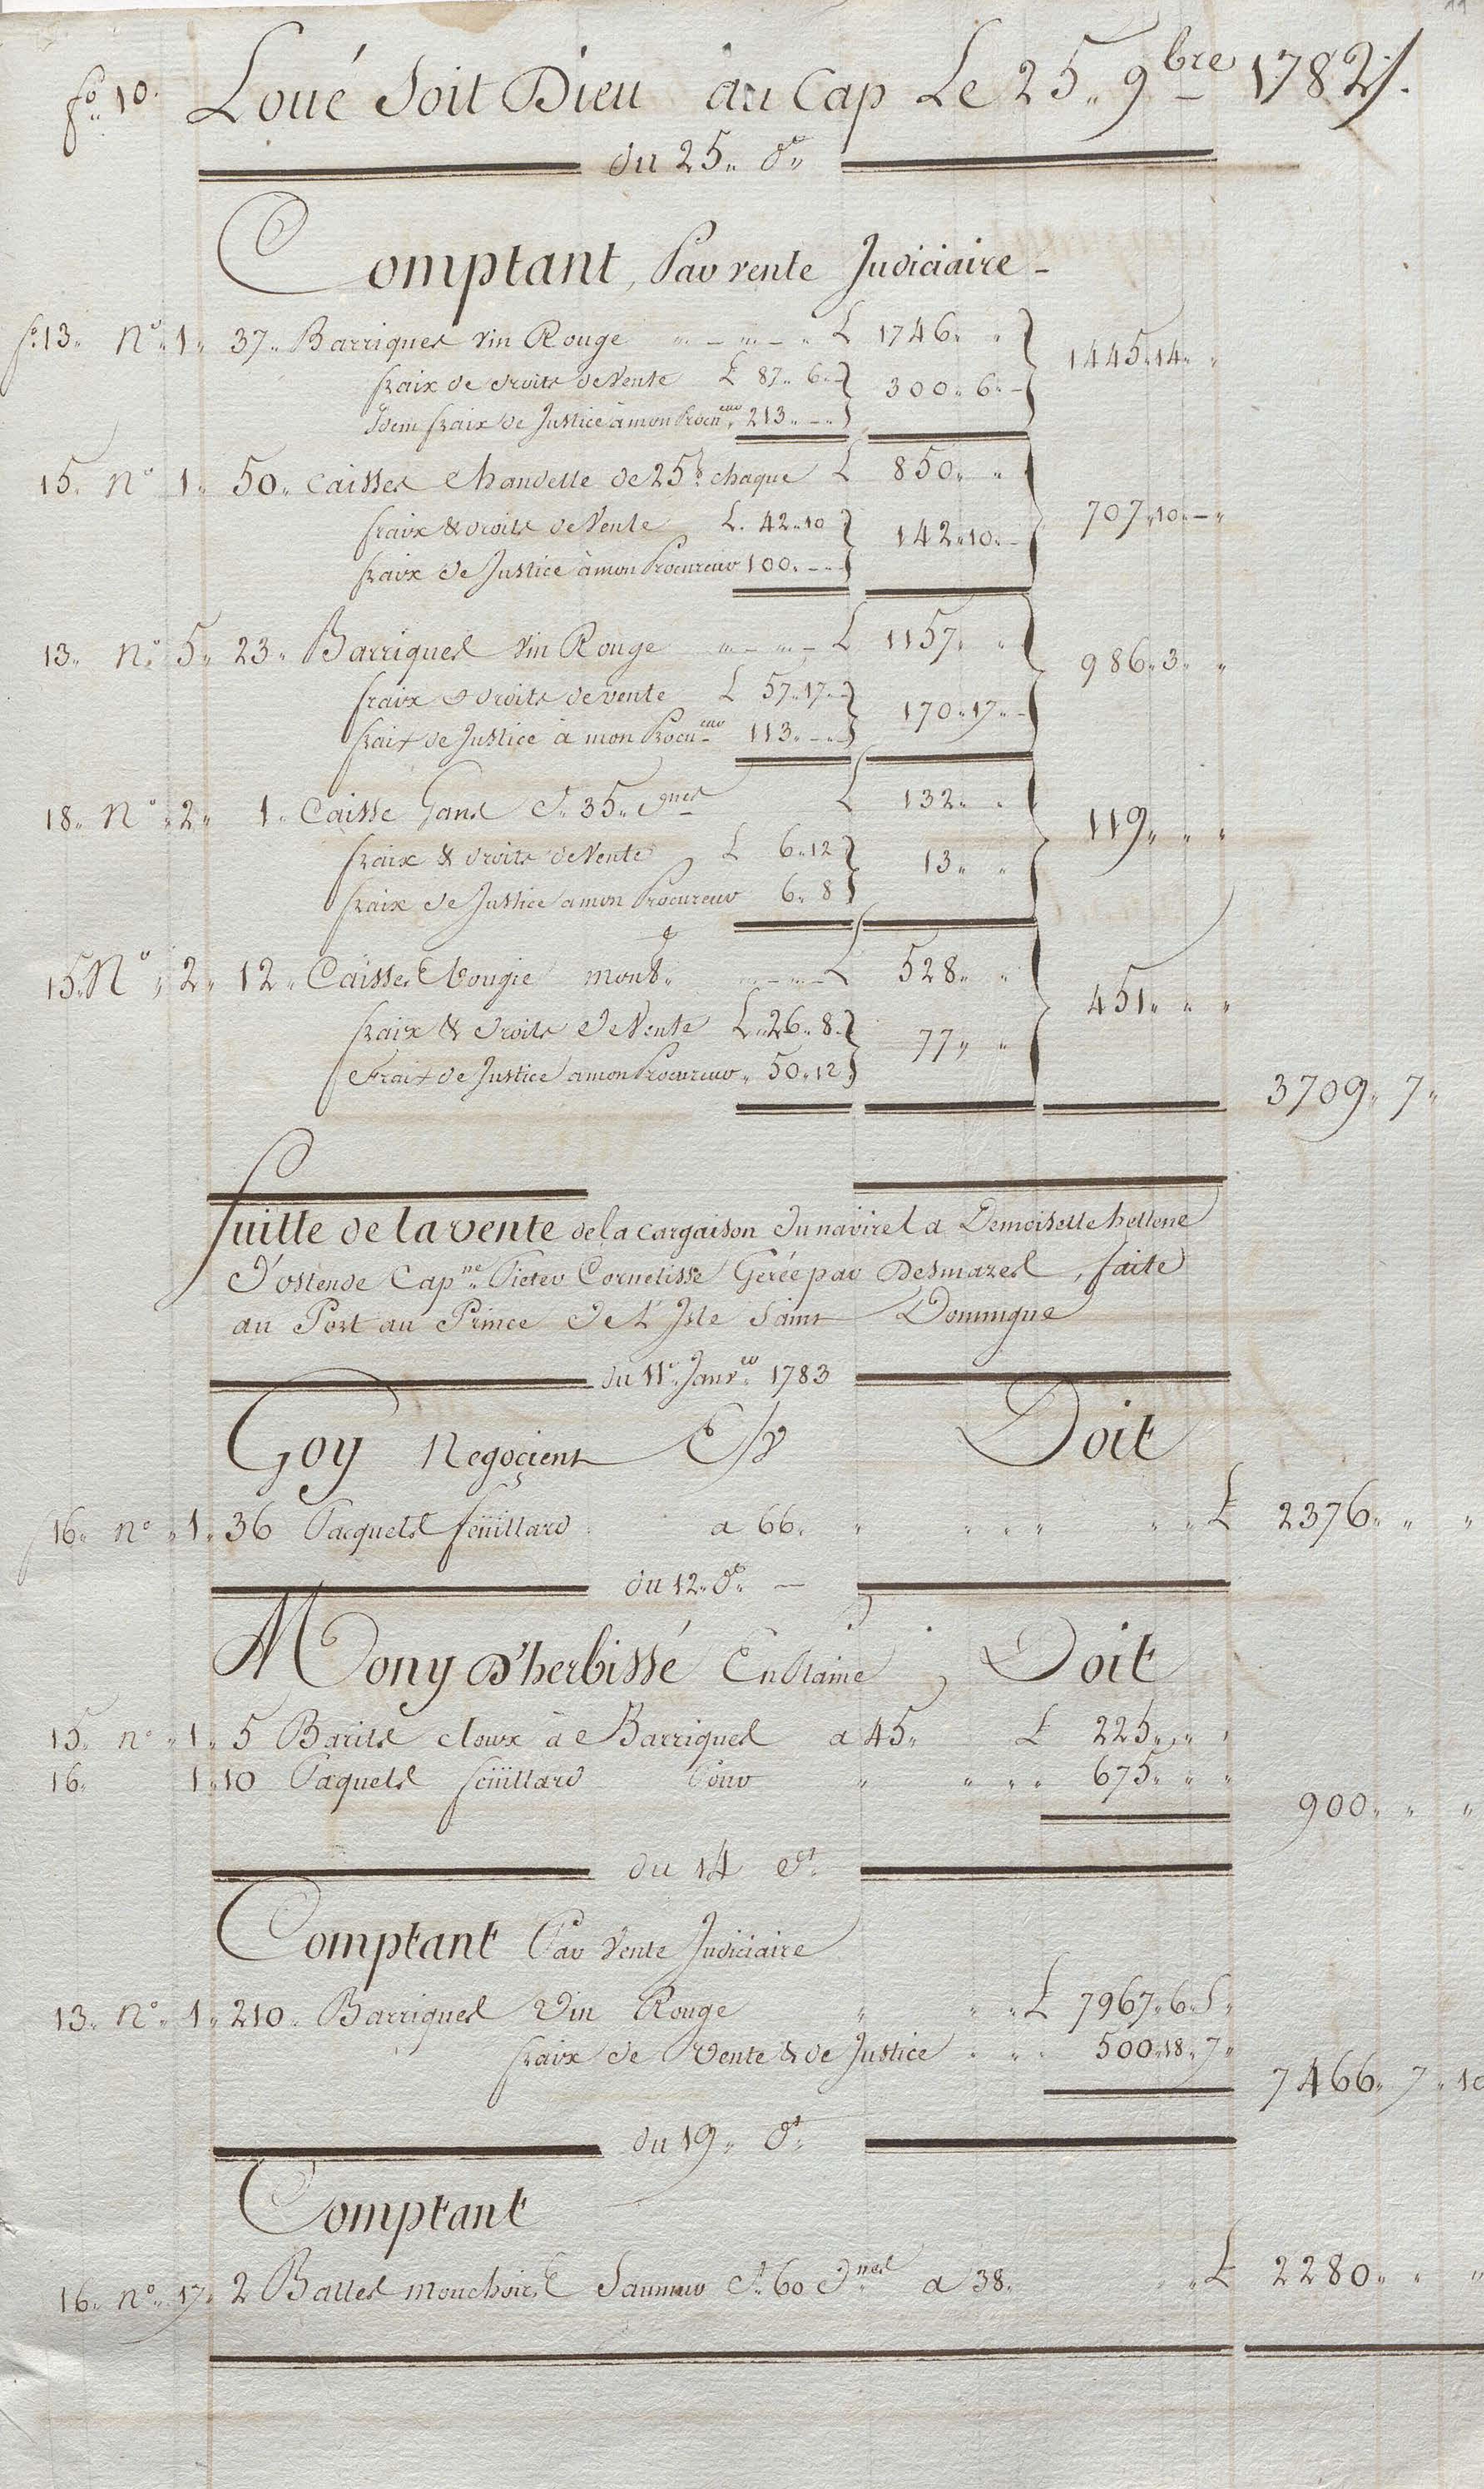 11
fo. 10. Loué Soit Dieu au Cap Le 25,, 9bre 1782 /.
du 25,, do,,
Comptant, Par vente Judiciaire -
fo. 13,, No. 1,, 37,, Barriques vin Rouge £ 1746,, ,, 1445,, 14,, ,,
fraix de droits de Vente £ 87,, 6,, - 300,, 6,, -
Idem fraix de Justice à mon Procureur,, 213,, - ,,
15,, No 1,, 50,, Caisses Chandelle de 25 lb. chaque £ 850,, ,, 707,, 10,, - ,,
fraix & droits de Vente £. 42,, 10 142,, 10,, -
fraix de Justice à mon Procureur 100,, - ,, -
13,, No. 5,, 23,, Barriques Vin Rouge £ 1157,, ,, 986,, 3,, ,,
fraix & droits de vente £ 57,, 17,, - 170,, 17,, -
fraix de Justice à mon Procureur 113,, - ,, -
18,, No,, 2,, 1,, Caisse Gans Ct. 35,, gnes £ 132,, ,, 119,, ,, ,,
fraix & droits de Vente £ 6,, 12 13,, ,,
fraix de Justice a mon Procureur 6,, 8
15,, No,, 2,, 12,, Caisses bougie £ 528,, ,, 451,, ,, ,,
fraix & droits de Vente £,, 26,, 8,, 77,, ,,
Fraix de Justice a mon Procureur,, 50,, 12
3709,, 7,,
Suitte de la vente de la cargaison du navire La Demoiselle hellene
d'ostende Capne. Pieter Cornelisse Gerée par Desmazes, faite
au Port au Prince de L'Isle Saint Domingue
du 11e. Janver 1783
Goy Negocient Doit
16,, no,, 1,, 36 Pacquets feüillard a 66,, £ 2376,, ,, ,,
du 12,, do,, -
Mony D'herbissé En Plaine, Doit
15,, no,, 1,, 5 Barils cloux à Barriques a 45,, £ 225,, ,, ,,
16,, 1,, 10 Paquets feüillard Pour 675,, ,, ,,
900,, ,, ,,
du 14 dt.
Comptant Par Vente Judiciaire
13,, No,, 1,, 210,, Barriques Vin Rouge £ 7967,, 6,, 5,,
fraix de Vente & de Justice 500,, 18,, 7,,
7466,, 7,, 10
du 19,, dt.
Comptant
16,, no,, 17,, 2 Balles mouchoirs Saumur Ct. 60 dnes a 38,, £ 2280,, ,, ,,